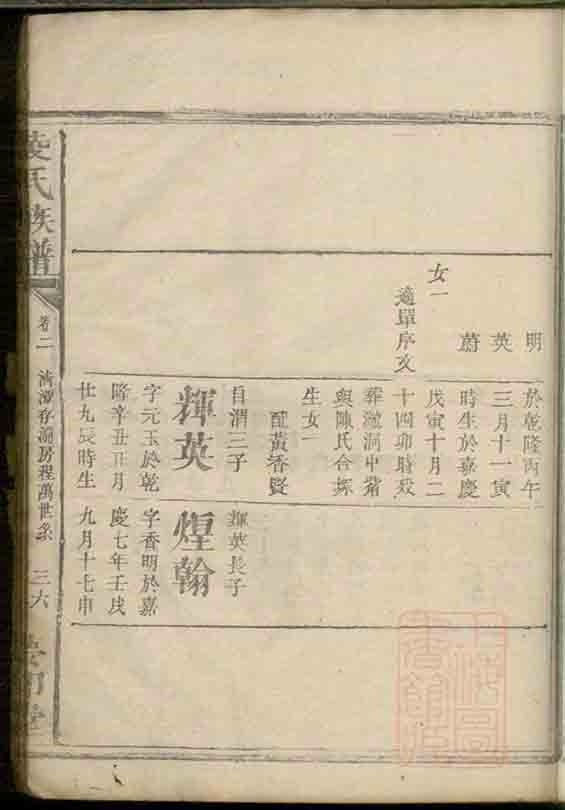 明
英
蔚
女一
適單序文
於乾隆丙午
三月十一寅
時生於嘉慶
戊寅十月二
十四卯時歿
葬洞中
與陳氏合塚
生女一
配黃香賢
自渭三子
輝英
字元玉於乾
隆辛丑正月
廿九辰時生
輝英長子
煌翰
字香明於嘉
慶七年壬戌
九月十七申
凌氏族譜
卷二
房程萬世系
三六
上海圖書館藏